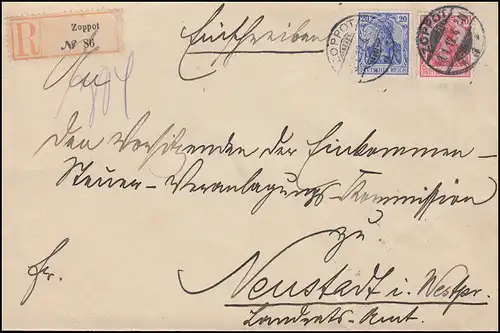 R
Zoppot
№ 86
Einschreiben
ZOPPOT
20 20
DEUTSCHES REICH
ZOPPOT
An
den Vorsitzenden der Einkommen-
Steuer-Veranlagungs-Kommission
zu
Fr.
Neustadt i. Westpr.
Landrats-Amt.